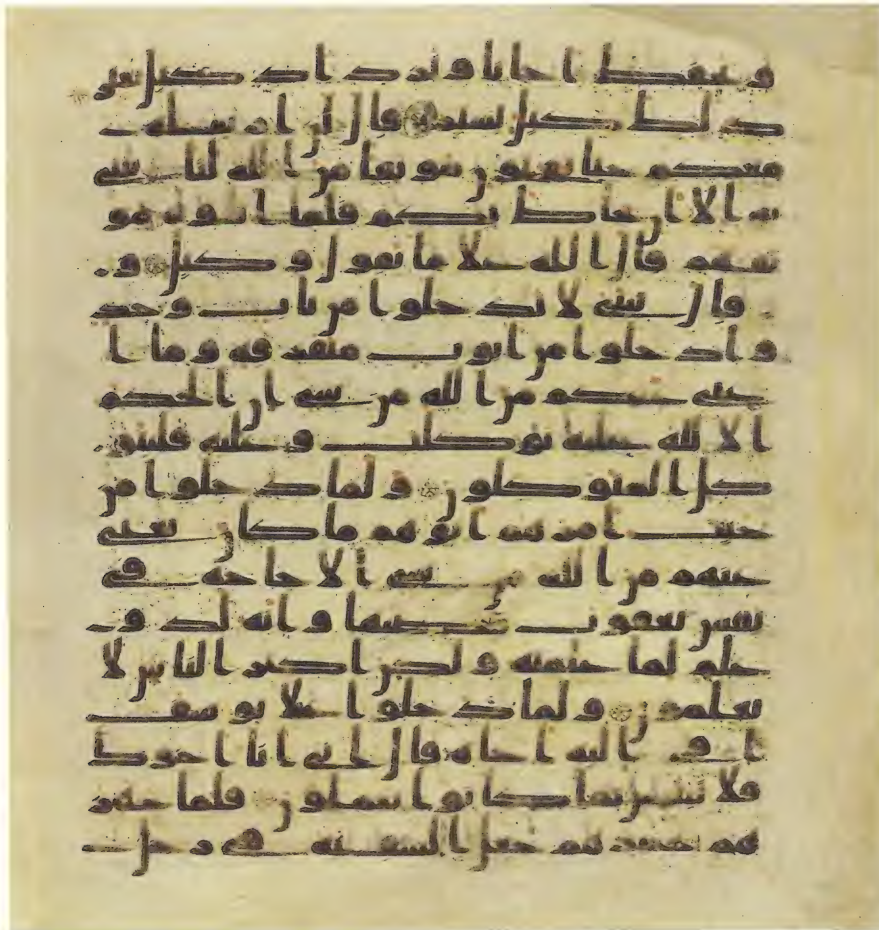 ونحفظ اخانا ونزداد كيل بعير
ذلك كيل يسير قال لن ارسله
معكم حتى تؤتون موثقا من الله لتاتنني
به الا ان يحاط بكم فلما اتوه مو
ثقهم قال الله علا ما نقول وكيل و
قال يبني لا تدخلوا من باب وحد
وادخلوا من ابوب متفرقه وما ا
غني عنكم من الله من شي ان الحكم
الا لله عليه توكلت وعليه فليتو
كل المتوكلون ولما دخلوا من
حيث امرهم ابوهم ما كان يغني
عنهم من الله من شي الا حاجه في
نفس يعقوب قضيها وانه لذو
علم لما علمنه ولكن اكثر الناس لا
يعلمون ولما دخلوا علا يوسف
اوي اليه اخاه قال اني انا اخوك
فلا تبتئس بما كانوا يعملون فلما جهز
هم بجهزهم جعل السقيه في رحل